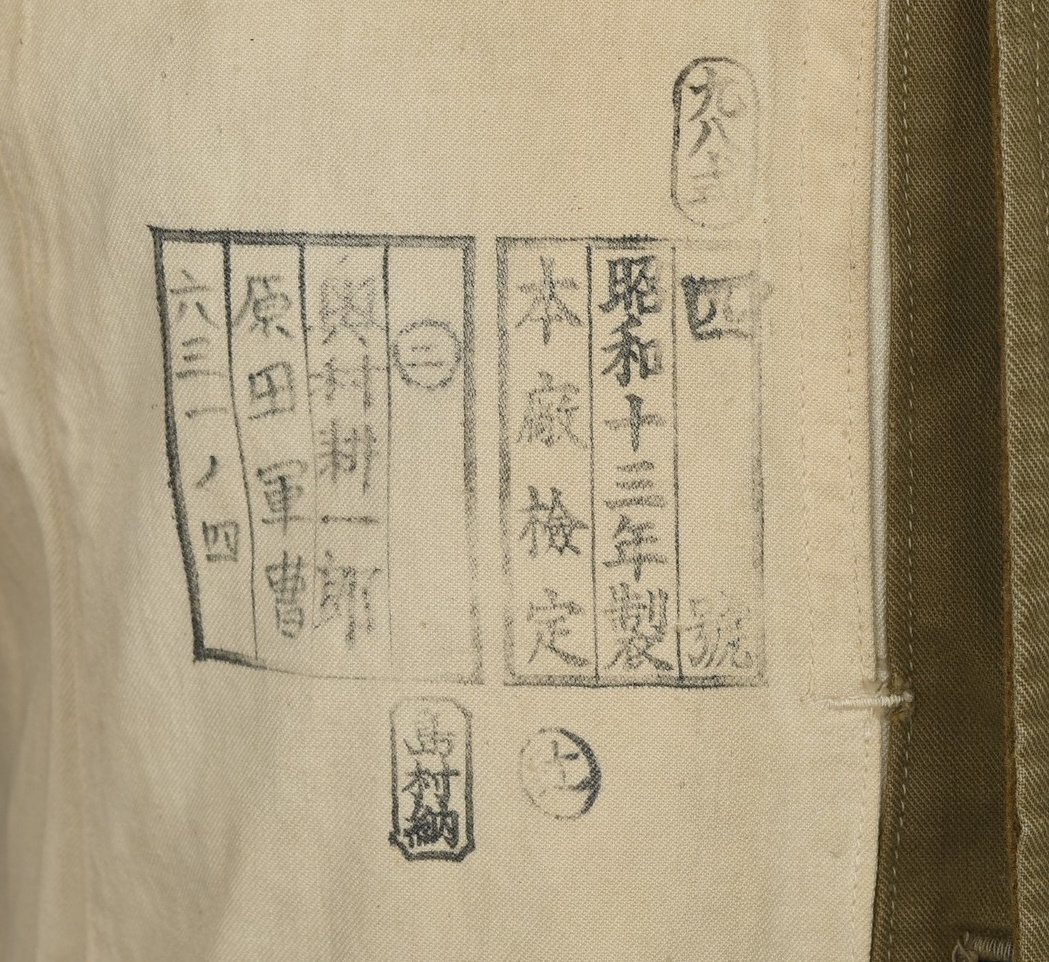 九八式
四號
昭和十三年製
本廠檢定
三
奥村耕一郎
原田軍曹
六三一ノ四
士
島村納